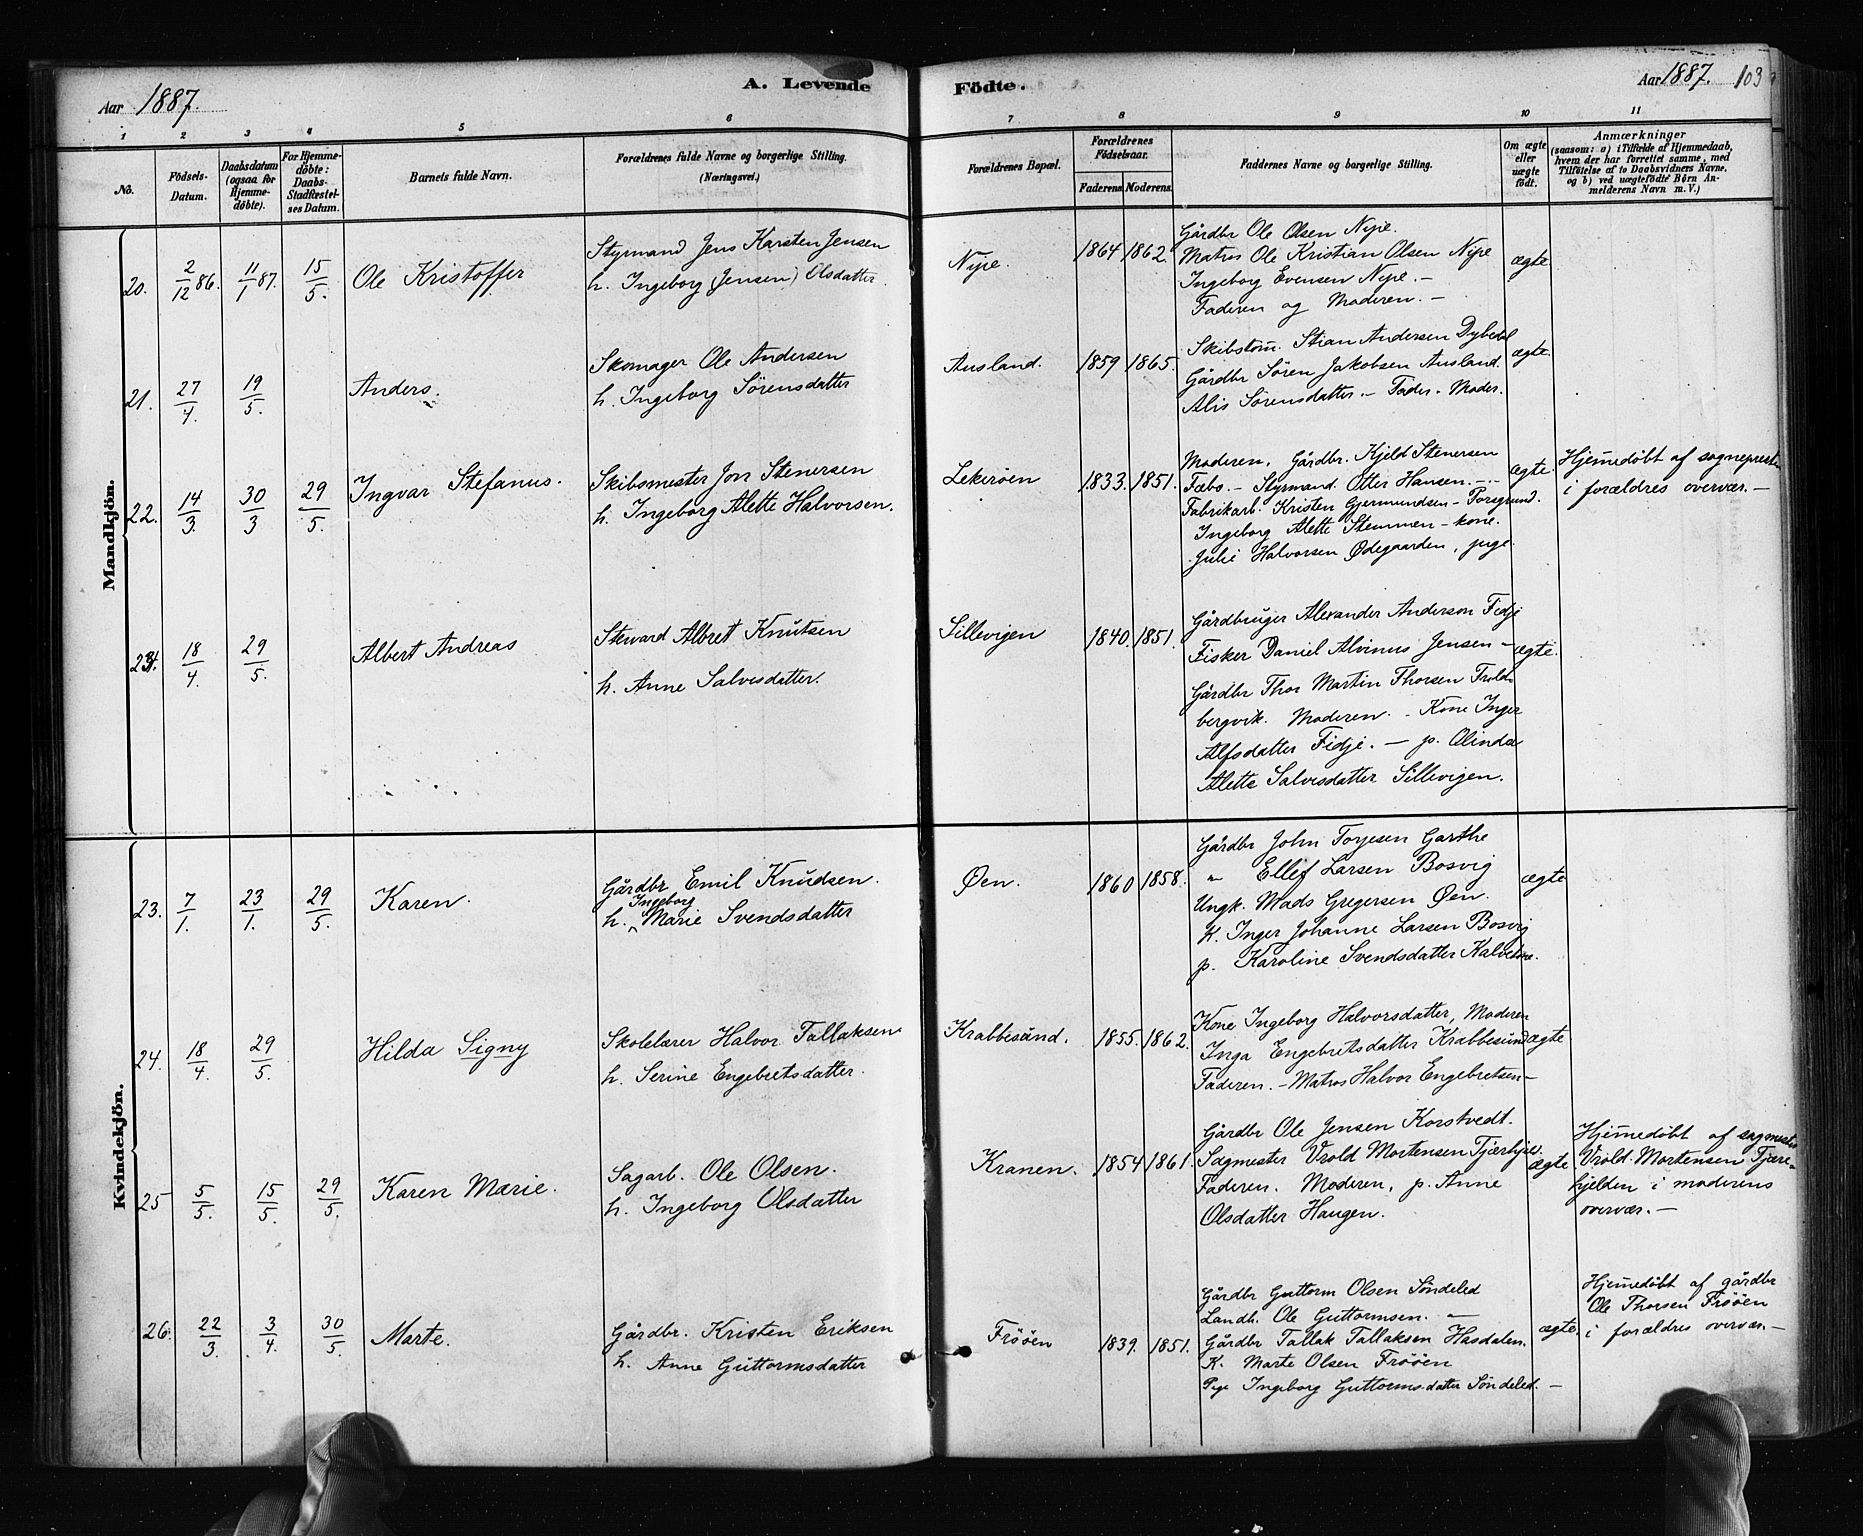 Aar 1887.
A. Levende
Födte.
Aar 1887. 103
1 2 3 4 5 6 7 8 9 10 11
No.
Födsels-
Datum.
Daabsdatum
(ogsaa for
Hjemme-
döbte).
For Hjemme-
döbte:
Daabs-
Stadfæstel-
ses Datum.
Barnets fulde Navn.
Forældrenes fulde Navne og borgerlige Stilling.
(Næringsvei.)
Forældrenes Bopæl.
Forældrenes
Födselsaar.
Faderens. Moderens.
Faddernes Navne og borgerlige Stilling.
Om ægte
eller
uægte
födt.
Anmærkninger
(saasom: a) i Tilfælde af Hjemmedaab,
hvem der har forrettet samme, med
Tilföielse af to Daabsvidners Navne,
og b) ved uægtefödte Börn An-
melderens Navn m. V.)
Mandkjön.
20. 2/12 86. 11/1 87. 15/5. Ole Kristoffer
Styrmand Jens Karsten Jensen
h. Ingeborg (Jensen) Olsdatter.
Nipe. 1864 1862.
Gårdbr Ole Olsen Nipe.
Matros Ole Kristian Olsen Nipe
Ingeborg Evensen Nipe. –
Faderen og Moderen. –
ægte
21. 27/4. 19/5. Anders.
Skomager Ole Andersen
h. Ingeborg Sörensdatter
Ausland. 1859 1865.
Skibstöm. Stian Andersen Dybedal
Gårdbr Sören Jakobsen Ausland.
Alis Sörensdatter. – Fader. Moder.
ægte
22. 14/3. 30/3 29/5. Ingvar Stefanus.
Skibsmester Jon Stenersen
h. Ingeborg Alette Halvorsen.
Lekeröen 1833. 1851.
Moderen. Gårdbr. Kjeld Stenersen
Fæbs. – Styrmand Otter Hansen. –
Fabrikarb. Kristen Gjermundsen – Porsgrund.
Ingeborg Alette Stemmen – kone.
Julie Halvorsen Ødegaarden, pige
ægte
Hjemmedöbt af sognepresten
i forældres overvær. –
24. 18/4. 29/5. Albert Andreas
Steward Albret Knutsen
h. Anne Salvesdatter.
Sillevigen 1840. 1851.
Gårdbruger Alexander Anderson Fidje
Fisker Daniel Alvinus Jensen –
Gårdbr Thor Martin Thorsen Trold-
bergvik. Moderen. – Kone Inger
Alfsdatter Fidje. – p. Olinda
Alette Salvesdatter Sillevigen.
ægte.
Kvindekjön.
23. 7/1. 23/1. 29/5. Karen.
Gårdbr Emil Knudsen.
Ingeborg
h. Marie Svendsdatter
Øen. 1860 1858.
Gårdbr John Torjesen Garthe
" Ellef Larsen Bosvig
Ungk. Mads Gregersen Øen.
K. Inger Johanne Larsen Bosvig
p. Karoline Svendsdatter
ægte
24. 18/4. 29/5. Hilda Signy
Skolelærer Halvor Tallaksen
h. Serine Engebretsdatter.
Krabbesund. 1855. 1862.
Kone Ingeborg Halvorsdatter, Moderen
Inga Engebretsdatter Krabbesund
Faderen. – Matros Halvor Engebretsen –
ægte
25 5/5. 15/5. 29/5. Karen Marie.
Sagarb. Ole Olsen.
h. Ingeborg Olsdatter
Kranen. 1854 1861.
Gårdbr Ole Jensen Korstvedt.
Sagmester Vrold Mortensen Tjærhjel.
Faderen. Moderen, p. Anne
Olsdatter Haugen.
ægte
Hjemmedöbt af sagmester
Vrold Mortensen Tjære-
hjelden i moderens
overvær. –
26. 22/3. 3/4. 30/5. Marte.
Gårdbr. Kristen Eriksen
h. Anne Guttormsdatter
Frööen 1839. 1851.
Gårdbr Guttorm Olsen Söndeled
Landh. Ole Guttormsen. –
Gårdbr Tallak Tallaksen Hasdalen.
K. Marte Olsen Frööen
Pige Ingeborg Guttormsdatter Söndeled. –
ægte.
Hjemmedöbt af gårdbr
Ole Thorsen Frööen
i forældres overvær. –